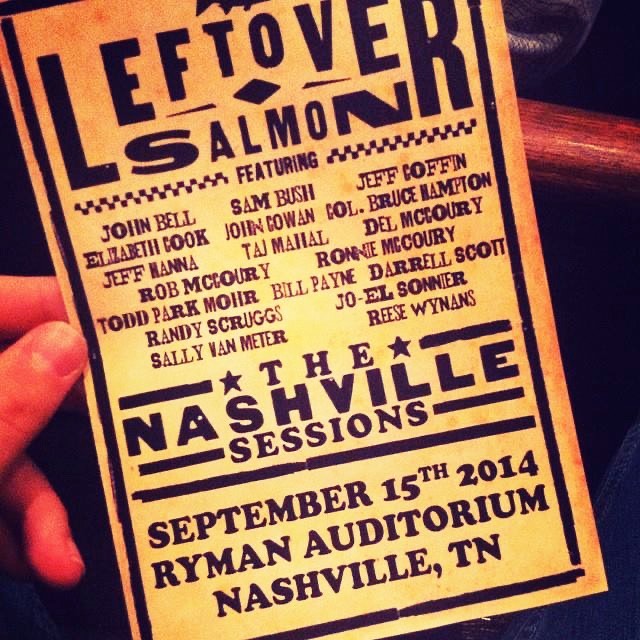 LEFTOVER
SALMON
FEATURING
JOHN BELL SAM BUSH JEFF COFFIN
ELIZABETH COOK JOHN COWAN COL. BRUCE HAMPTON
JEFF HANNA TAJ MAHAL DEL MCCOURY
ROB MCCOURY RONNIE MCCOURY
TODD PARK MOHR BILL PAYNE DARRELL SCOTT
RANDY SCRUGGS JO-EL SONNIER
SALLY VAN METER REESE WYNANS
THE
NASHVILLE
SESSIONS
SEPTEMBER 15TH 2014
RYMAN AUDITORIUM
NASHVILLE, TN